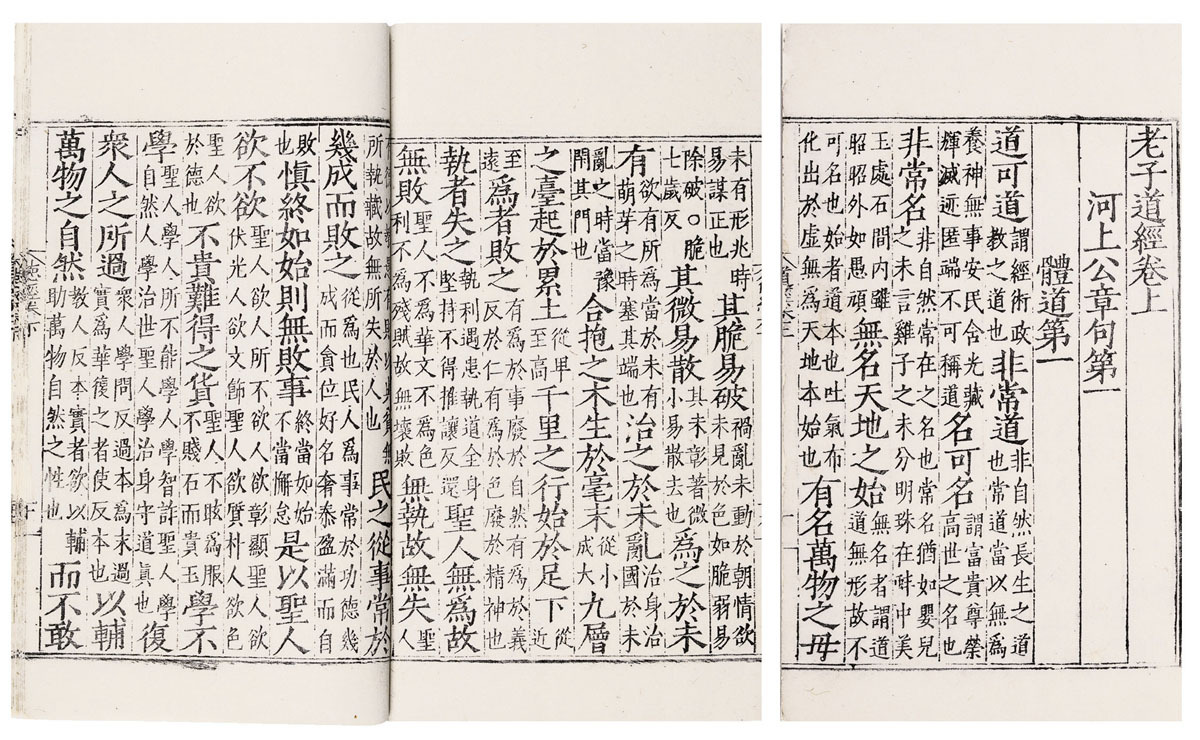 老子道經卷上
河上公章句第一
體道第一
道可道謂經術政教之道也非常道非自然長生之道也常道當以無爲
養神無事安民含光藏輝滅迹匿端不可稱道名可名謂富貴尊榮高世之名也
非常名非自然常在之名也常名猶如嬰兒之未言雞子之未分明珠在蚌中美
玉處石間内雖昭昭外如愚頑無名天地之始無名者謂道道無形故不
可名也始者道本也吐氣布化出於虛無爲天地本始也有名萬物之母
未有形兆時易謀正也其脆易破禍亂未動於朝情欲未見於色如脆弱易
除破○脆七歲反其微易散其未彰著微小易散去也爲之於未
有欲有所爲當於未有萌芽之時塞其端也治之於未亂治身治國於未
亂之時當豫閉其門也合抱之木生於毫末從小成大九層
之臺起於累土從卑至高千里之行始於足下從近
至遠爲者敗之有爲於事廢於自然有爲於義於仁有爲於色廢於精神也
執者失之執利遇患執道全身堅持不得推讓反還聖人無爲故
無敗聖人不爲華文不爲色利不爲殘賊故無壞敗無執故無失聖人
所執藏故無所失於人也民之從事常於
幾成而敗之從爲也民人爲事常於功德幾成而貪位好名奢泰盈滿而自
敗也慎終如始則無敗事終當如始不當懈怠是以聖人
欲不欲聖人欲人所不欲人欲彰顯聖人欲伏光人欲文飾聖人欲質朴人欲色
聖人欲於德也不貴難得之貨聖人不眩爲服不賤石而貴玉學不
學聖人學人所不能學人學智詐聖人學自然人學治世聖人學治身守道眞也復
衆人之所過衆人學問反過本爲末過實爲華復之者使反本也以輔
萬物之自然教人反本實者欲以輔助萬物自然之性也而不敢